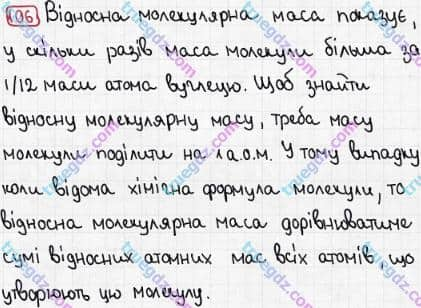 106 Відносна молекулярна маса показує,
у скільки разів маса молекули більша за
1/12 маси атома вуглецю. Щоб знайти
відносну молекулярну масу, треба масу
молекули поділити на 1 а.о.м. У тому випадку
коли відома хімічна формула молекули, то
відносна молекулярна маса дорівнюватиме
сумі відносних атомних мас всіх атомів, що
утворюють цю молекулу.